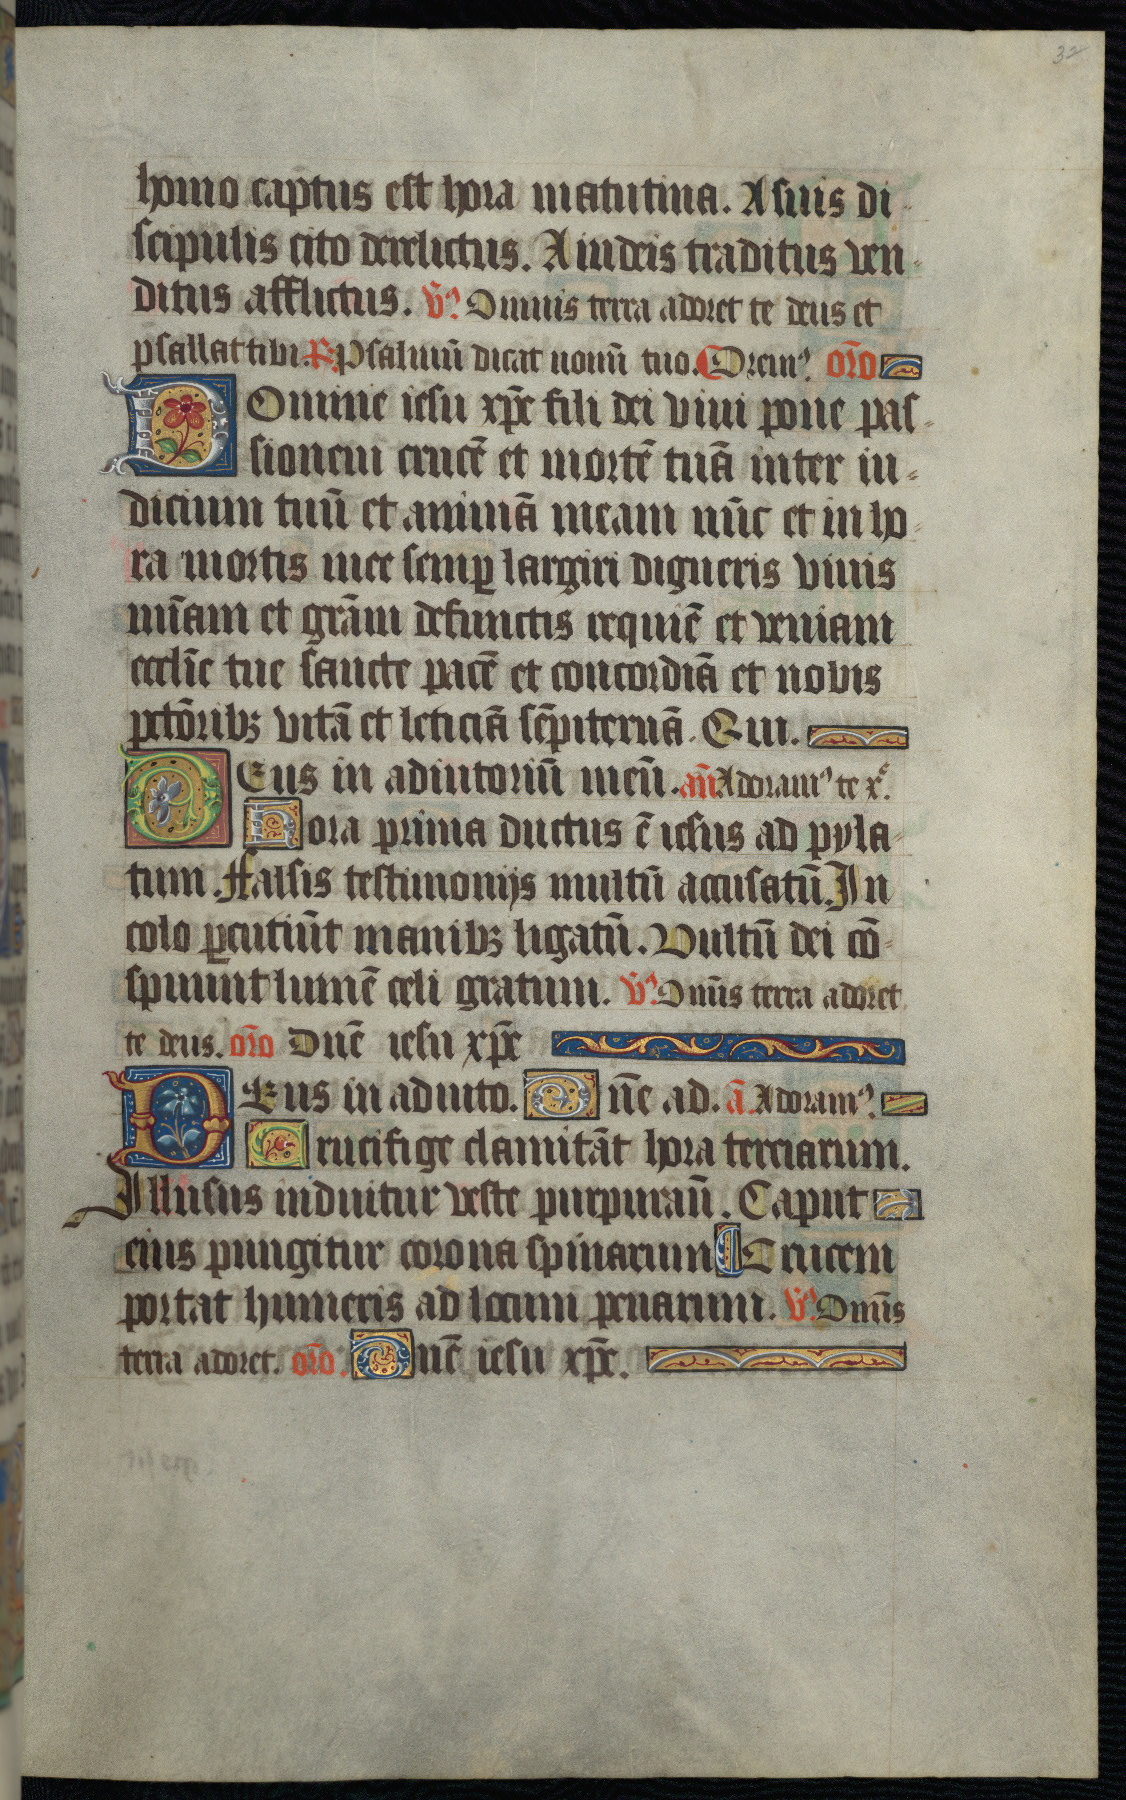 32
homo captus est hora matutina. A suis di
scipulis cito derelictus. A iudeis traditus ven-
ditus afflictus. v̄ꝰ Omnis terra adoret te deus et
psallat tibi. R Psalmū dicat nomī tuo. Oremꝰ. orō
Domine iesu xp̄e fili dei viui pone pas-
sionem crucē et mortē tuā inter iu-
dicium tuū et animā meam nūc et in ho-
ra mortis mee semꝑ largiri digneris viuis
mīam et grām defunctis requiē et veniam
eccl̄ie tue sancte pacē et concordiā et nobis
pctōribꝫ vitā et leticiā sēpiternā. Qui.
Deus in adiutoriū meū. an̄ Adoramꝰ te xᵉ.
Hora prima ductus ē iesus ad pyla-
tum. Falsis testimonijs multū accusatū. In
colo ꝑcutiūt manibꝫ ligatū. Vultū dei cō-
spuunt lumē celi gratum. v̄ꝰ Omīs terra adoret
te deus. orō Dn̄e iesu xp̄e
Deus in adiuto. Dn̄e ad. ā Adoramꝰ.
Crucifige clamitāt hora terciarum.
Illusus induitur veste purpuraū. Caput
eius pungitur corona spinarum Crucem
portat humeris ad locum penarum. v̄ꝰ Omīs
terra adoret. orō. Dn̄e iesu xp̄e.